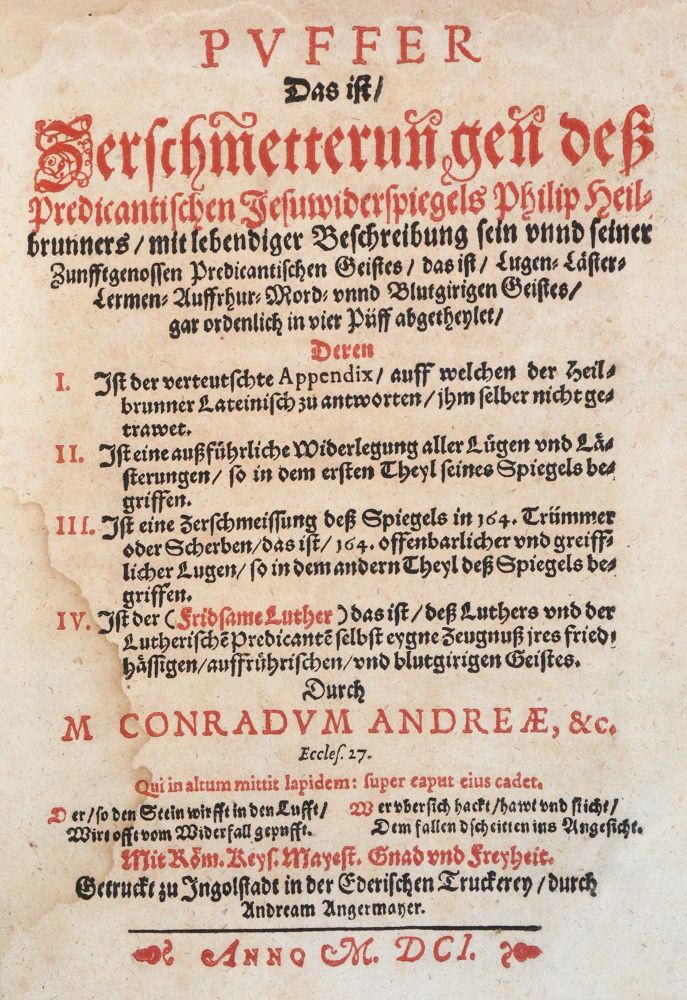 PVFFER
Das ist/
Zerschm̃etterun̄gen̄ deß
Predicantischen Jesuwiderspiegels Philip Heil-
brunners/ mit lebendiger Beschreibung sein vnnd seiner
Zunfftgenossen Predicantischen Geistes/ das ist/ Lugen- Läster-
Lermen- Auffrhur- Mord- vnnd Blutgirigen Geistes/
gar ordenlich in vier Püff abgetheylet/
Deren
I. Ist der verteutschte Appendix/ auff welchen der Heil-
brunner Lateinisch zu antworten/ jhm selber nicht ge-
trawet.
II. Ist eine außführliche Widerlegung aller Lügen vnd Lä-
sterungen/ so in dem ersten Theyl seines Spiegels be-
griffen.
III. Ist eine Zerschmeissung deß Spiegels in 164. Trümmer
oder Scherben/ das ist/ 164. offenbarlicher vnd greiff-
licher Lugen/ so in dem andern Theyl deß Spiegels be-
griffen.
IV. Ist der (Fridsame Luther) das ist/ deß Luthers vnd der
Lutherischē Predicantē selbst eygne Zeugnuß jres fried-
hässigen/ auffrührischen/ vnd blutgirigen Geistes.
Durch
M CONRADVM ANDREÆ, &c.
Eccles. 27.
Qui in altum mittit lapidem: super caput eius cadet.
Der/ so den Stein wirfft in den Lufft/ Wer vbersich hackt/ hawt vnd sticht/
Wirt offt vom Widerfall gepufft. Dem fallen dscheitten ins Angesicht.
Mit Röm. Keys. Mayest. Gnad vnd Freyheit.
Getruckt zu Ingolstadt in der Ederischen Truckerey/ durch
Andream Angermayer.
ANNO M. DCI.